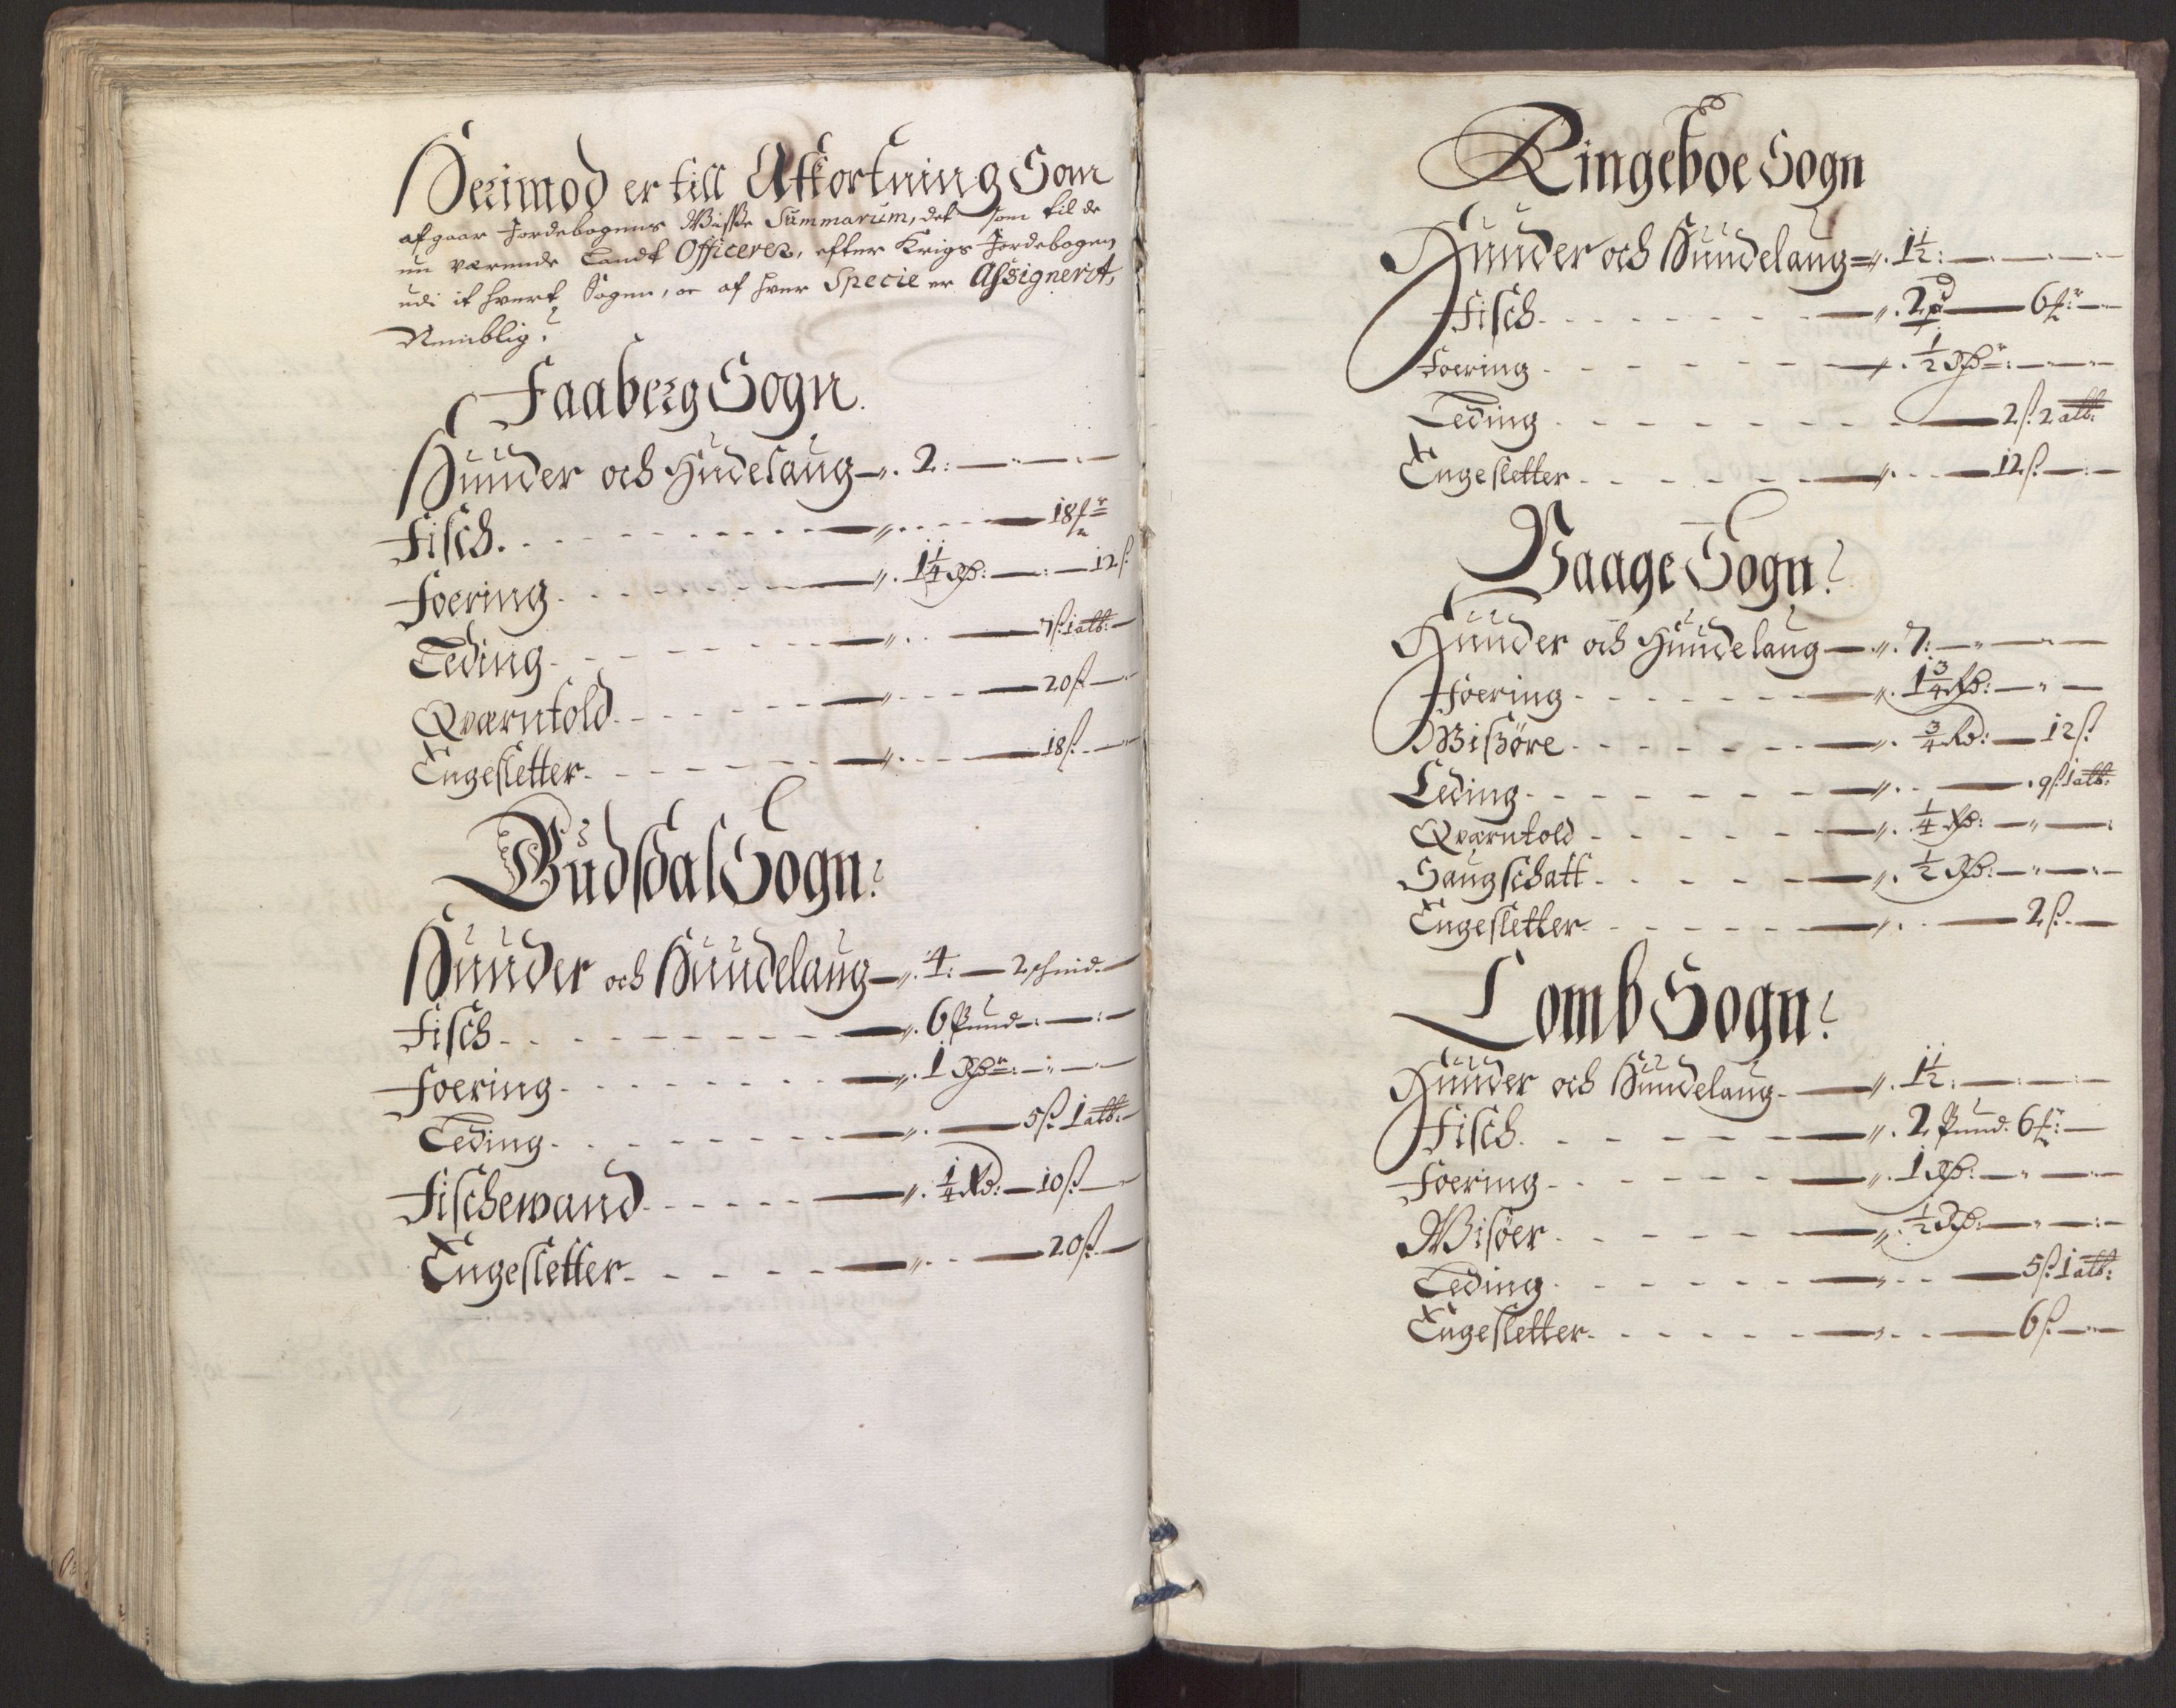 Herimod er till Affkortning Som
afgaar Jordebogens Wisse Summarum, det som til de
nu værende Landt Officerer, efter Krigs Jordebogen
udi it hvert Sogen, oc af hver Specie er Assignerit,
Nemblig:
Faaberg Sogn.
Huuder och Hudelaug 2:
Fisch. 18
Foering 1 1/4 Rd: 12 ß
Leding 7 ß 1 alb:
Qværntold 20 ß
Engesletter 18 ß
Gudsdal Sogn:
Huuder och Huudelaug 4: 2 schind.
Fisch 6 Pund
Foering 1 Rdr:
Leding 5 ß 1 alb:
Fischewand 1/4 Rd: 10 ß
Engesletter 20 ß
Ringeboe Sogn
Huuder och Huudelaug 1 1/2:
Fisch 2 pd 6
Foering 1/2 Rdr:
Leding 2 ß 2 alb:
Engesletter 12 ß
Waage Sogn:
Huuder och Huudelaug 7:
Foering 1 3/4 Rd:
Wisøre 3/4 Rd: 12 ß
Leding 9 ß 1 alb:
Qværntold 1/4 Rd:
Saugschatt 1/2 Rd:
Engesletter 2 ß
Lomb Sogn:
Huuder och Huudelaug 1 1/2:
Fisch 2 Pund 6
Foering 1 Rd:
Wisøer 1/2 Rd:
Leding 5 ß 1 alb:
Engesletter 6 ß